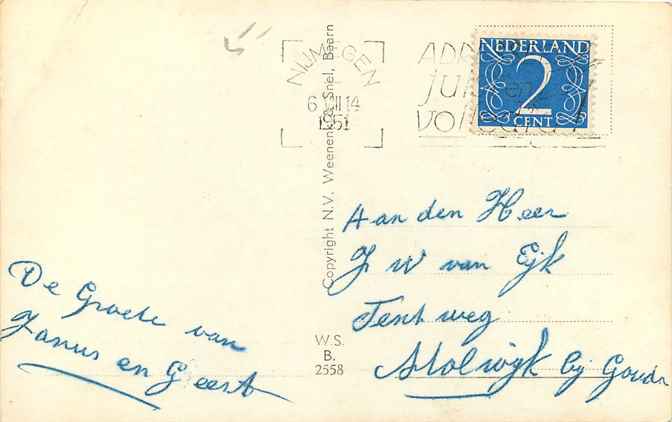 NIJMEGEN
1951
NEDERLAND
2
CENT
Copyright N.V. Weenenk & Snel, Baarn
Aan den Heer
J W van Eijk
Tentweg
Stolwijk bij Gouda
De Groete van
Janus en Geert
W.S.
B.
2558